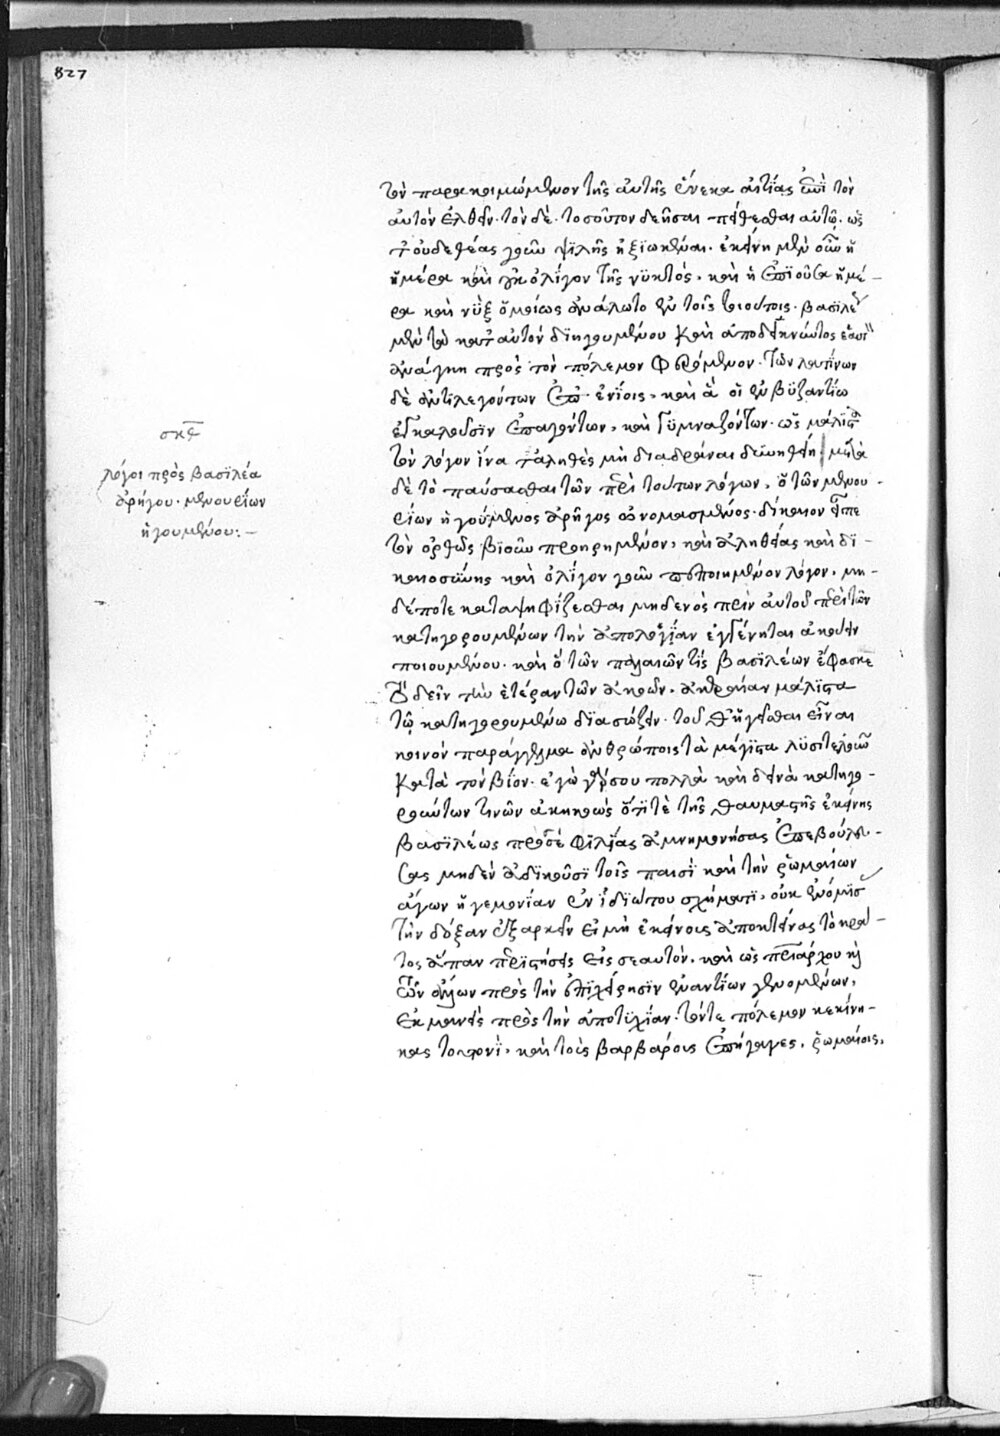 827
τὸν παρακοιμώμενον τῆς αὐτῆς ἕνεκα αἰτίας ἐπὶ τὸν
αὐτὸν ἐλθεῖν. τὸν δὲ τοσοῦτον δεῆσαι πείθεσθαι αὐτῷ. ὡς
οὐδὲ θέας γοῦν ψιλῆς ἠξιωκέναι. ἐκείνη μὲν οὖν ἡ
ἡμέρα καὶ οὐκ ὀλίγον τῆς νυκτός, καὶ ἡ ἐπϊοῦσα ἡμέ-
ρα καὶ νὺξ ὁμοίως ἀνάλωτο ἐν τοῖς τοιούτοις. βασιλέως
μὲν τὰ κατ' αὐτὸν διηγουμένου καὶ ἀποδεικνύντος ἑαυτὸν
ἀνάγκη πρὸς τὸν πόλεμον φερόμενον. τῶν λατίνων
δὲ ἀντιλεγόντων ἐπ' ἐνίοις, καὶ ἃ οἱ ἐν βϋζαντίω
ἐγκαλοῦσϊν ἐπαγόντων, καὶ γϋμναζόντων. ὡς μάλιστα
τὸν λόγον ἵνα τἀληθὲς μὴ διαδρᾶναι δεϋνηθείη μετὰ
δὲ τὸ παύσασθαι τῶν περὶ τούτων λόγων, ὁ τῶν μινου-
ρίων ἡγούμενος ἀρῆγος ὠνομασμένος. δίκαιον εἶπε
τὸν ὀρθῶς βϊοῦν προῃρημένον, καὶ ἀληθείας καὶ δϊ-
καιοσύνης καὶ ὀλίγον γοῦν πεποιημένον λόγον, μη-
δέποτε καταψηφίζεσθαι μηδενὸς πρὶν αὐτοῦ περὶ τῶν
κατηγορουμένων τὴν ἀπολογίαν ἐγγένηται ἀκούειν
ποιουμένου. καὶ ὅ τῶν παλαιῶν τὶς βασϊλέων ἔφασκε
δεῖν τὴν ἑτέραν τῶν ἀκοῶν, ἀκεραίαν μάλιστα
τῷ κατηγορουμένω διασώζειν. τοῦθ' ἡγεῖσθαι εἶναι
κοινὸν παράγγελμα ἀνθρώποις τὰ μέγιστα λϋσιτελοῦν
κατὰ τὸν βίον. ἐγὼ γάρ σου πολλὰ καὶ δεινὰ κατηγο-
ρούντων τινῶν ἀκηκοὼς ὅτϊ τὲ τῆς θαυμαστῆς ἐκείνης
βασϊλέως πρὸς σὲ φϊλίας ἀμνημονήσας ἐπεβούλευ-
σας μηδὲν ἀδϊκοῦσϊ τοῖς παισὶ καὶ τὴν ῥωμαίων
ἄγων ἡγεμονίαν ἐν ἰδϊώτου σχήματϊ, οὐκ ἐνόμισας
τὴν δόξαν ἐξαρκεῖν εἰ μὴ ἐκείνοις ἀποκτείνας τὸ κρά-
τος ἅπαν περιστήσεις εἰς σεαυτόν. καὶ ὡς πατριάρχου καὶ
τῶν ἄλλων πρὸς τὴν ἐπϊχείρησϊν ἐναντίων γενομένων,
ἐκμανεὶς πρὸς τὴν ἀποτϋχίαν. τόντε πόλεμον κεκίνη-
κας τουτονϊ, καὶ τοὺς βαρβάρους ἐπήγαγες, ῥωμαίοις,
σκϛ
λόγοι πρὸς βασϊλέα
ἀρήγου. μινουρίων
ἡγουμένου:-